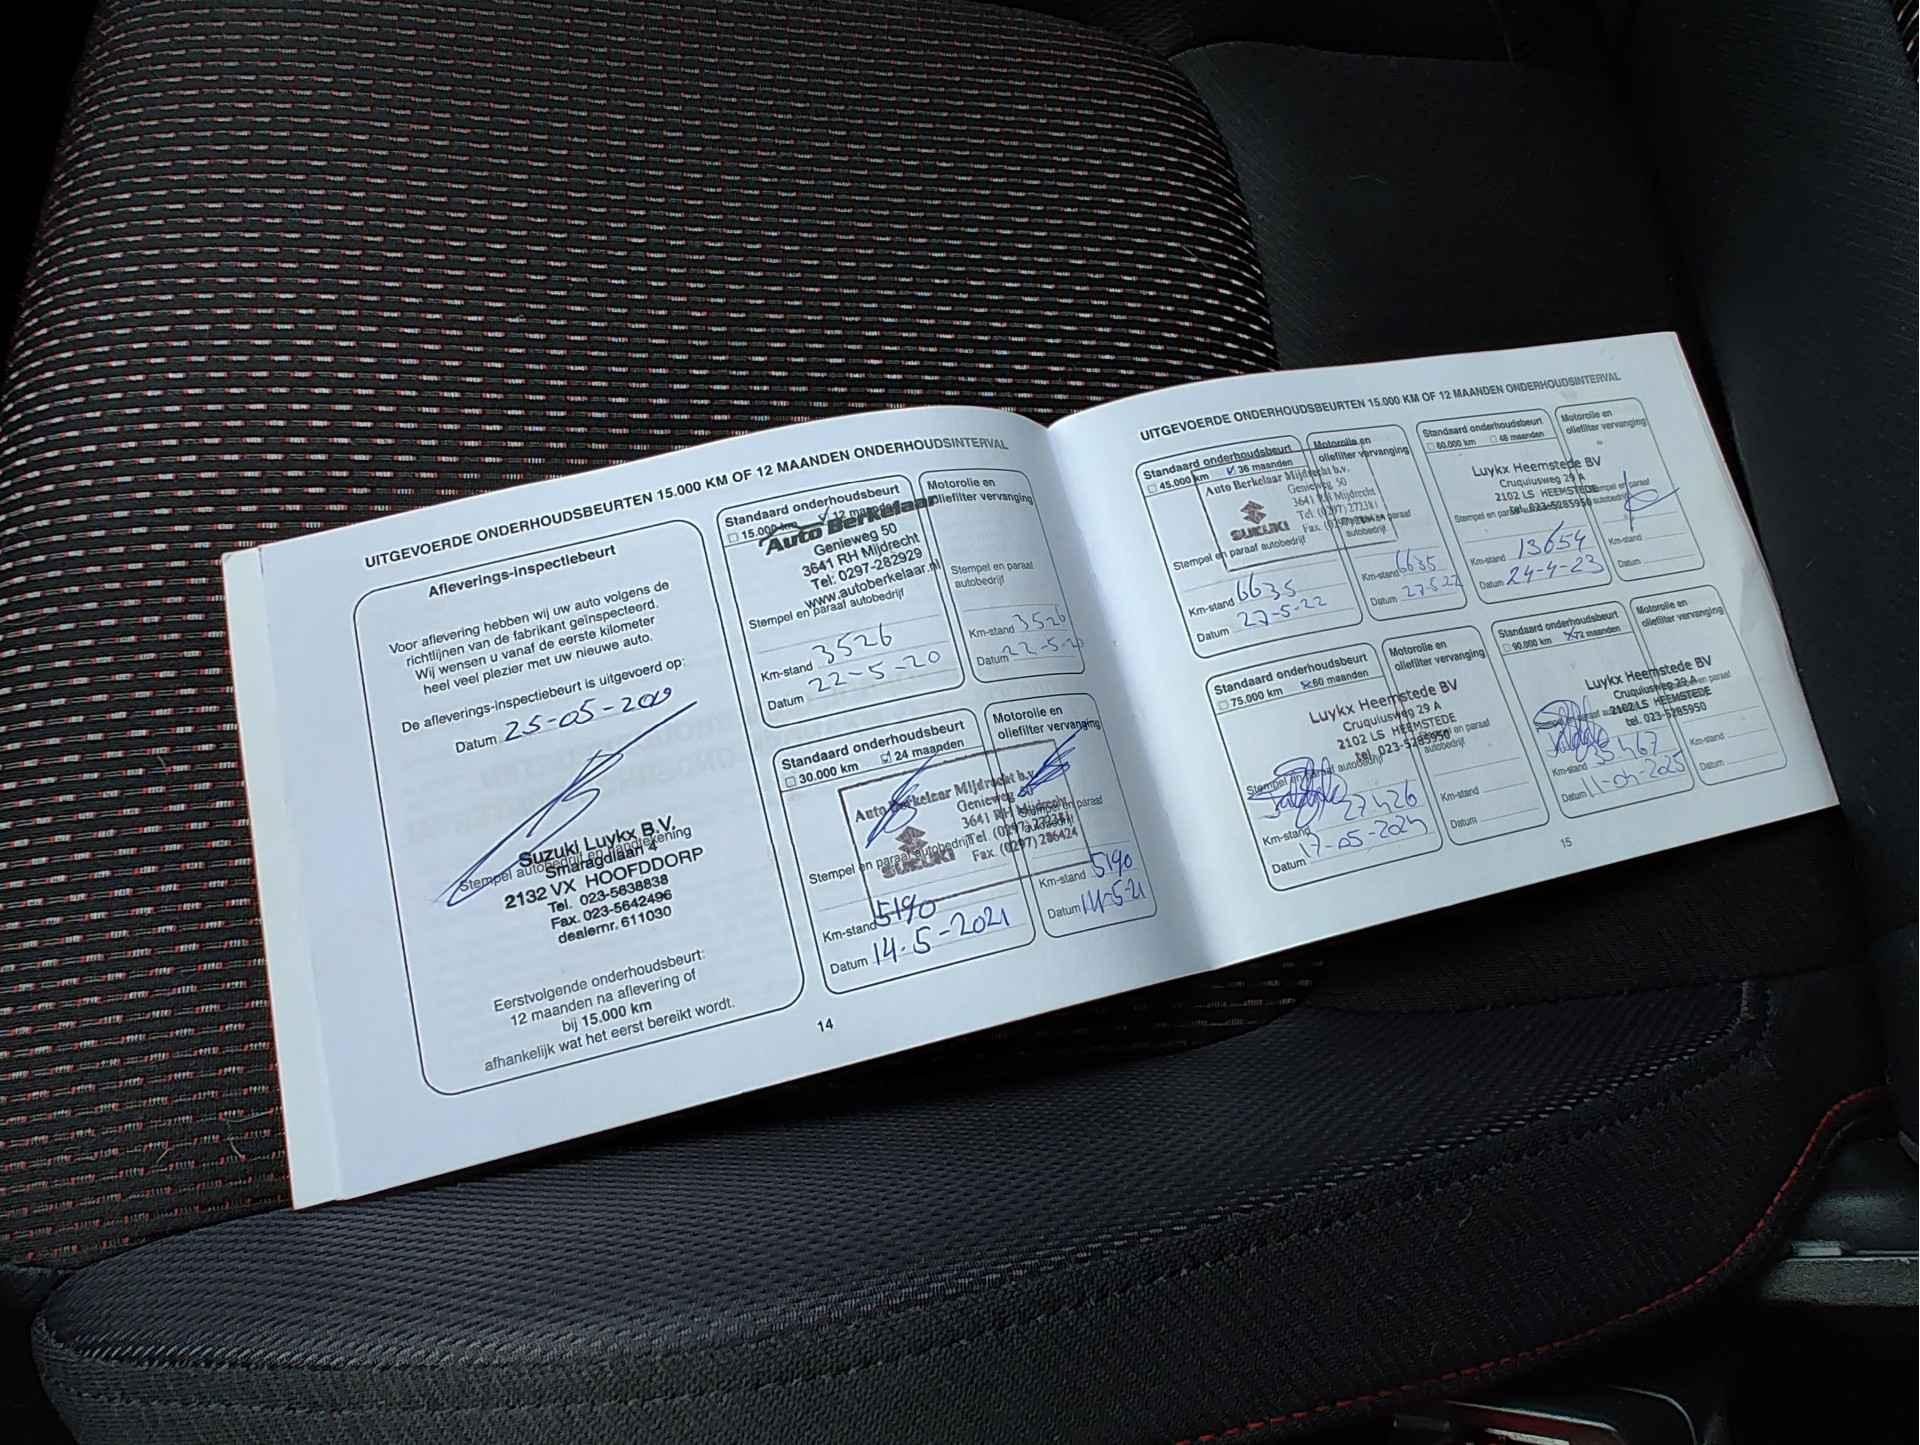 UITGEVOERDE ONDERHOUDSBEURTEN 15.000 KM OF 12 MAANDEN ONDERHOUDSINTERVAL
Afleverings-inspectiebeurt
Voor aflevering hebben wij uw auto volgens de
richtlijnen van de fabrikant geïnspecteerd.
Wij wensen u vanaf de eerste kilometer
heel veel plezier met uw nieuwe auto.
De afleverings-inspectiebeurt is uitgevoerd op:
Datum 25-05-2019
Suzuki Luykx B.V.
Stempel autobedrijf en handtekening
Smaragdlaan 4
2132 VX HOOFDDORP
Tel. 023-5638838
Fax. 023-5642496
dealernr. 611030
Eerstvolgende onderhoudsbeurt:
12 maanden na aflevering of
bij 15.000 km
afhankelijk wat het eerst bereikt wordt.
Standaard onderhoudsbeurt
15.000 km 12 maanden
Auto Berkelaar
Genieweg 50
3641 RH Mijdrecht
Tel: 0297-282929
www.autoberkelaar.nl
Stempel en paraaf autobedrijf
Km-stand 3526
Datum 22-5-20
Motorolie en
oliefilter vervanging
Stempel en paraaf
autobedrijf
Km-stand 3526
Datum 22-5-20
Standaard onderhoudsbeurt
30.000 km 24 maanden
Auto Berkelaar Mijdrecht b.v.
Genieweg 50
3641 RH Mijdrecht
Tel (0297) 272381
Fax (0297) 286424
SUZUKI
Stempel en paraaf autobedrijf
Km-stand 5190
Datum 14-5-2021
Motorolie en
oliefilter vervanging
Stempel en paraaf
autobedrijf
Km-stand 5190
Datum 14-5-21
14
UITGEVOERDE ONDERHOUDSBEURTEN 15.000 KM OF 12 MAANDEN ONDERHOUDSINTERVAL
Standaard onderhoudsbeurt
45.000 km 36 maanden
Auto Berkelaar Mijdrecht b.v.
Genieweg 50
3641 RH Mijdrecht
Tel (0297) 272381
SUZUKI
Stempel en paraaf autobedrijf
Km-stand 6635
Datum 27-5-22
Motorolie en
oliefilter vervanging
autobedrijf
Km-stand 6635
Datum 27-5-22
Standaard onderhoudsbeurt
60.000 km 48 maanden
Luykx Heemstede BV
Cruquiusweg 29 A
2102 LS HEEMSTEDE
tel. 023-5285950
Stempel en paraaf autobedrijf
Km-stand 13654
Datum 24-4-23
Motorolie en
oliefilter vervanging
Stempel en paraaf
autobedrijf
Km-stand
Datum
Standaard onderhoudsbeurt
75.000 km 60 maanden
Luykx Heemstede BV
Cruquiusweg 29 A
2102 LS HEEMSTEDE
tel. 023-5285950
Stempel en paraaf autobedrijf
Km-stand 27426
Datum 17-05-2024
Motorolie en
oliefilter vervanging
Stempel en paraaf
autobedrijf
Km-stand
Datum
Standaard onderhoudsbeurt
90.000 km 72 maanden
Luykx Heemstede BV
Cruquiusweg 29 A
2102 LS HEEMSTEDE
tel. 023-5285950
Km-stand 35467
Datum 11-04-2025
Motorolie en
oliefilter vervanging
Km-stand
Datum
15